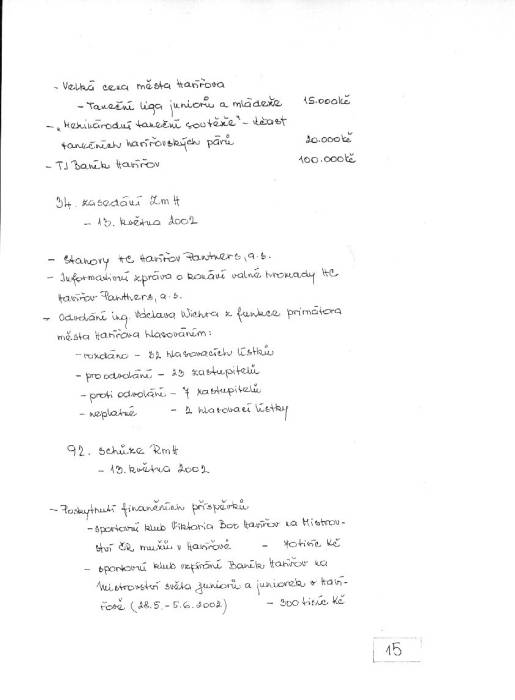 - Velká cena města Havířova
- Taneční liga juniorů a mládeže 15.000Kč
- „Mezinárodní taneční soutěže" - účast
tanečních havířovských párů 20.000Kč
- TJ Baník Havířov 100.000Kč
34. zasedání ZmH
- 13. května 2002
- Stanovy HC Havířov Panthers, a.s.
- Informativní zpráva o konání valné hromady HC
Havířov Panthers, a.s.
- Odvolání ing. Václava Wichra z funkce primátora
města Havířova hlasováním:
- vydáno - 32 hlasovacích lístků
- pro odvolání - 23 zastupitelů
- proti odvolání - 7 zastupitelů
- neplatné - 2 hlasovací lístky
92. schůze RmH
- 13. května 2002
- Poskytnutí finančních příspěvků
- sportovní klub Viktoria Box Havířov na Mistrov-
ství ČR mužů v Havířově - 40 tisíc Kč
- sportovní klub vzpírání Baník Havířov na
Mistrovství světa juniorů a juniorek v Haví-
řově (28.5. - 5.6.2002) - 300 tisíc Kč
15